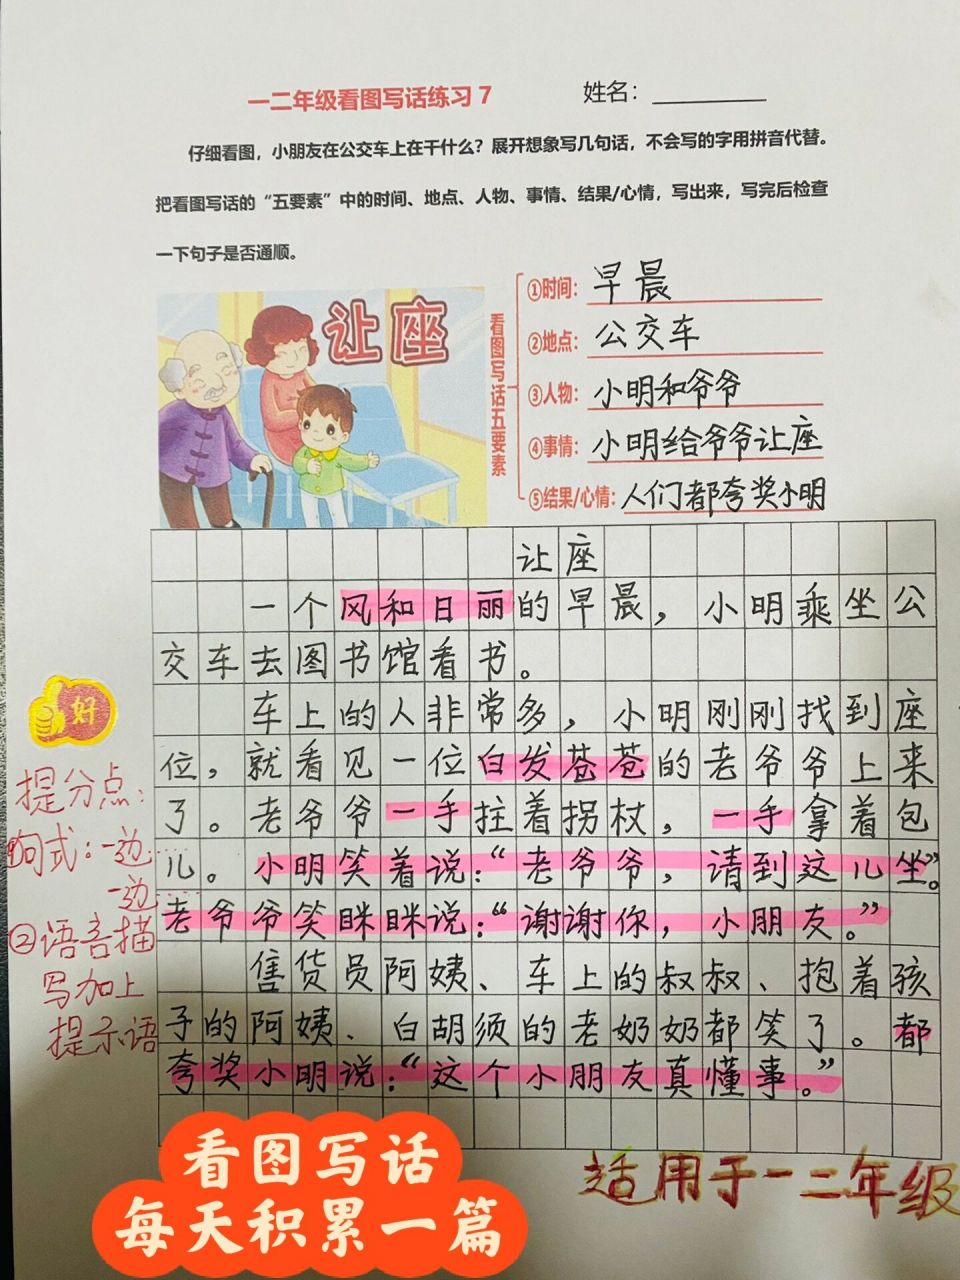 一二年级看图写话练习 7 姓名：
仔细看图，小朋友在公交车上在干什么？展开想象写几句话，不会写的字用拼音代替。
把看图写话的“五要素”中的时间、地点、人物、事情、结果/心情，写出来，写完后检查
一下句子是否通顺。
让座
看图写话五要素
①时间：早晨
②地点：公交车
③人物：小明和爷爷
④事情：小明给爷爷让座
⑤结果/心情：人们都夸奖小明
让座
一个风和日丽的早晨，小明乘坐公
交车去图书馆看书。
车上的人非常多，小明刚刚找到座
位，就看见一位白发苍苍的老爷爷上来
了。老爷爷一手拄着拐杖，一手拿着包
儿。小明笑着说：“老爷爷，请到这儿坐”。
老爷爷笑眯眯说：“谢谢你，小朋友。”
售货员阿姨、车上的叔叔、抱着孩
子的阿姨、白胡须的老奶奶都笑了。都
夸奖小明说：“这个小朋友真懂事。”
好
提分点：
①句式：一边……
一边……
②语言描
写加上
提示语
看图写话
每天积累一篇
适用于一二年级